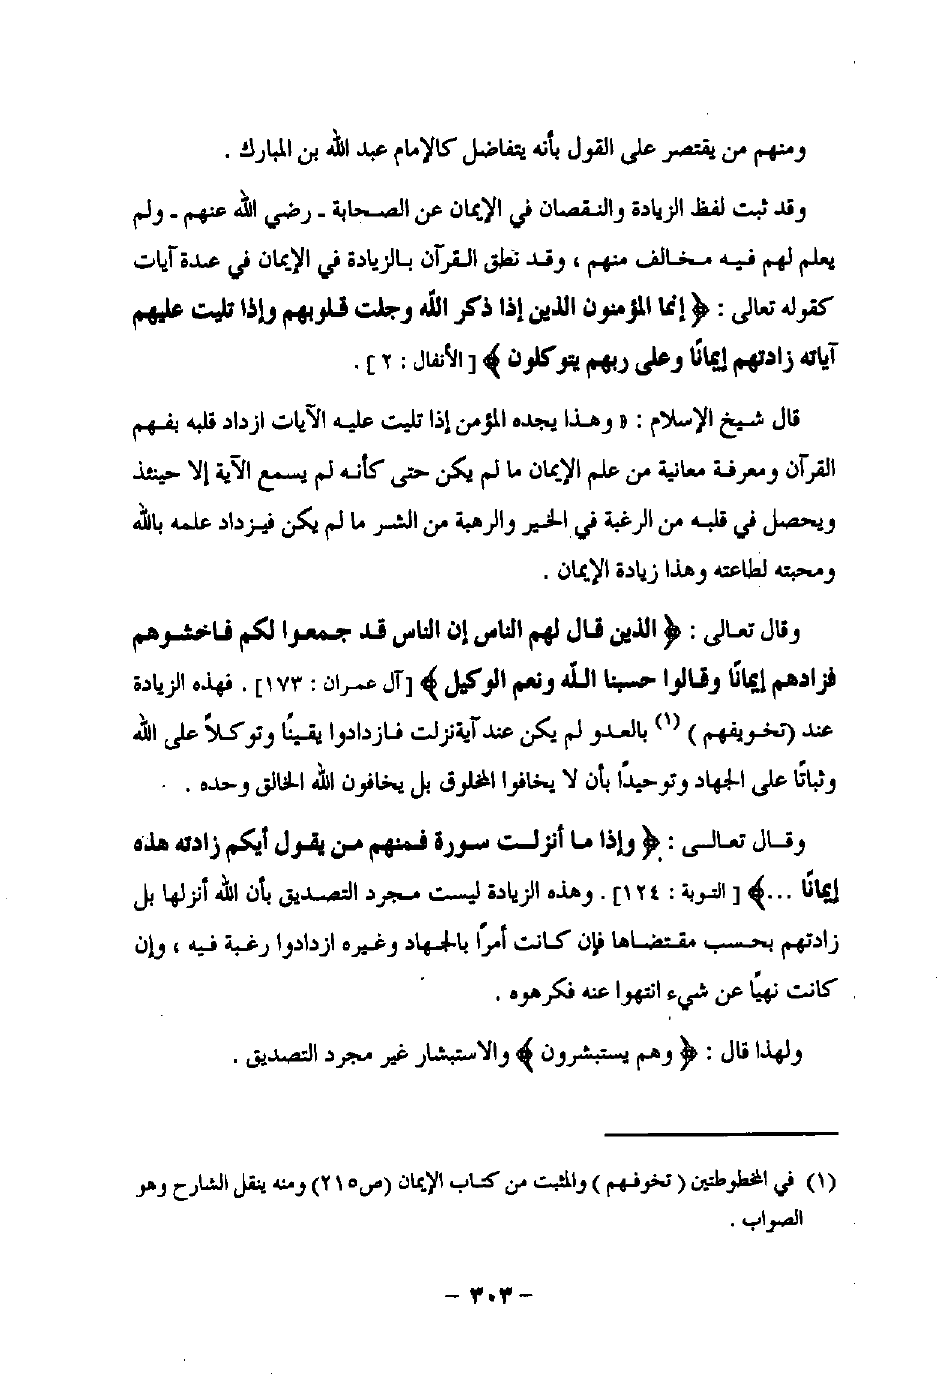 ومنهم من يقتصر على القول بأنه يتفاضل كالإمام عبد الله بن المبارك .
وقد ثبت لفظ الزيادة والنقصان في الإيمان عن الصحابة ـ رضي الله عنهم ـ ولم
يعلم لهم فيه مخالف منهم ، وقد نطق القرآن بالزيادة في الإيمان في عدة آيات
كقوله تعالى : ﴿ إنما المؤمنون الذين إذا ذكر الله وجلت قلوبهم وإذا تليت عليهم
آياته زادتهم إيمانًا وعلى ربهم يتوكلون ﴾ [ الأنفال : ٢ ] .
قال شيخ الإسلام : « وهذا يجده المؤمن إذا تليت عليه الآيات ازداد قلبه بفهم
القرآن ومعرفة معانية من علم الإيمان ما لم يكن حتى كأنه لم يسمع الآية إلا حينئذ
ويحصل في قلبه من الرغبة في الخير والرهبة من الشر ما لم يكن فيزداد علمه بالله
ومحبته لطاعته وهذا زيادة الإيمان .
وقال تعالى : ﴿ الذين قال لهم الناس إن الناس قد جمعوا لكم فاخشوهم
فزادهم إيمانًا وقالوا حسبنا الله ونعم الوكيل ﴾ [آل عمران : ١٧٣] . فهذه الزيادة
عند (تخويفهم ) (١) بالعدو لم يكن عند آيةنزلت فازدادوا يقينًا وتوكلاً على الله
وثباتًا على الجهاد وتوحيدًا بأن لا يخافوا المخلوق بل يخافون الله الخالق وحده .
وقال تعالى : ﴿ وإذا ما أنزلت سورة فمنهم من يقول أيكم زادته هذه
إيمانًا ...﴾ [ التوبة : ١٢٤] . وهذه الزيادة ليست مجرد التصديق بأن الله أنزلها بل
زادتهم بحسب مقتضاها فإن كانت أمرًا بالجهاد وغيره ازدادوا رغبة فيه ، وإن
كانت نهيًا عن شيء انتهوا عنه فكرهوه .
ولهذا قال : ﴿ وهم يستبشرون ﴾ والاستبشار غير مجرد التصديق .
(١) في المخطوطتين ( تخوفهم ) والمثبت من كتاب الإيمان (ص٢١٥) ومنه ينقل الشارح وهو
الصواب .
– ٣٠٣ –